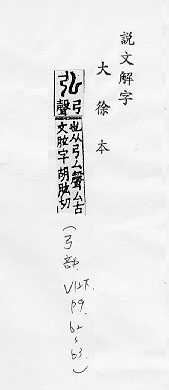 說文解字
大徐本
弘
弓聲
也从弓厶聲厶古
文肱字胡肱切
(弓部 V12下. P9. b2~b3.)